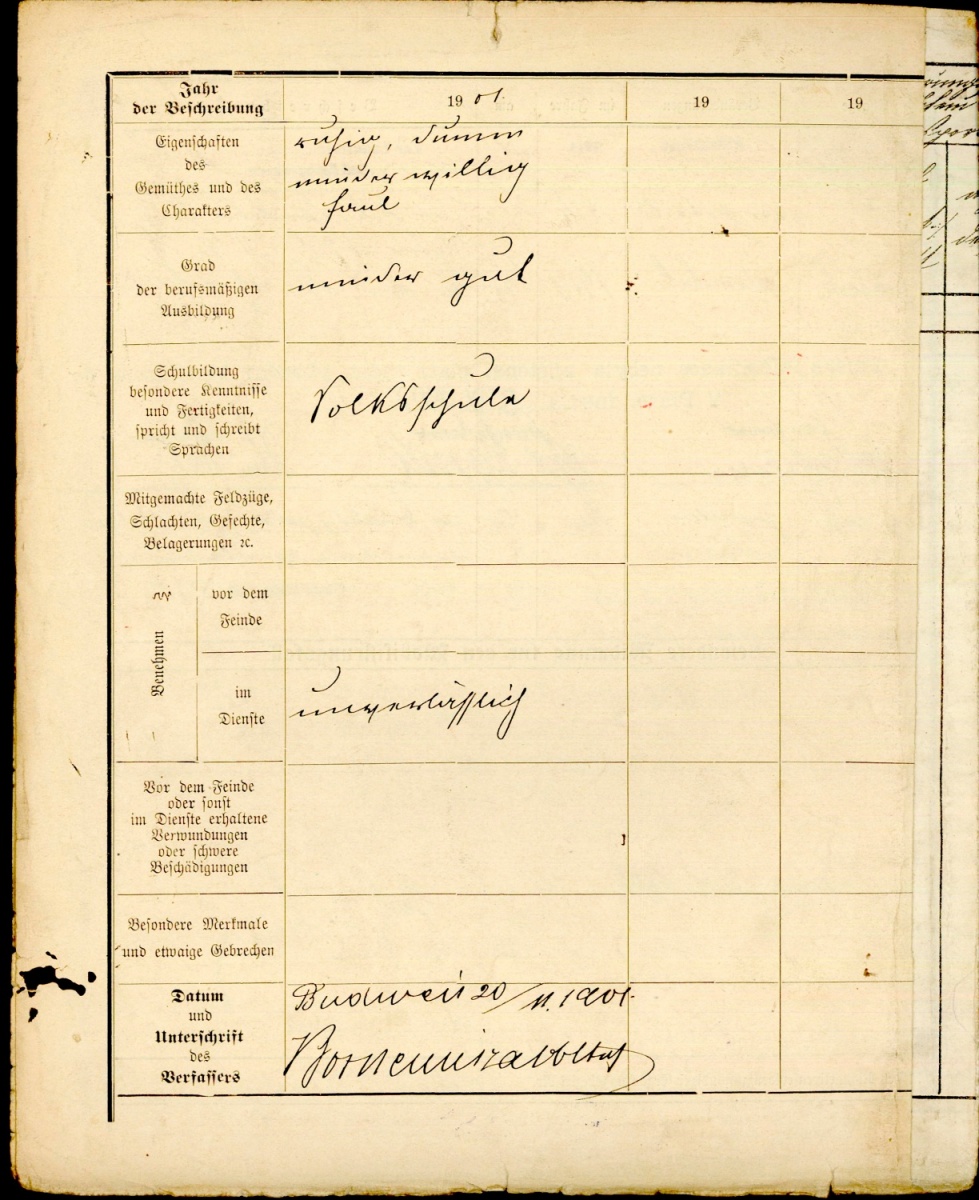 Jahr
der Beschreibung
1901
19
19
Eigenschaften
des
Gemüthes und des
Charakters
ruhig, dumm
minder willig
faul
Grad
der berufsmäßigen
Ausbildung
minder gut
Schulbildung
besondere Kenntnisse
und Fertigkeiten,
spricht und schreibt
Sprachen
Volksschule
Mitgemachte Feldzüge,
Schlachten, Gefechte,
Belagerungen ꝛc.
Benehmen
vor dem
Feinde
im
Dienste
unverläßlich
Vor dem Feinde
oder sonst
im Dienste erhaltene
Verwundungen
oder schwere
Beschädigungen
Besondere Merkmale
und etwaige Gebrechen
Datum
und
Unterschrift
des
Verfassers
Budweis 20/11. 1901.